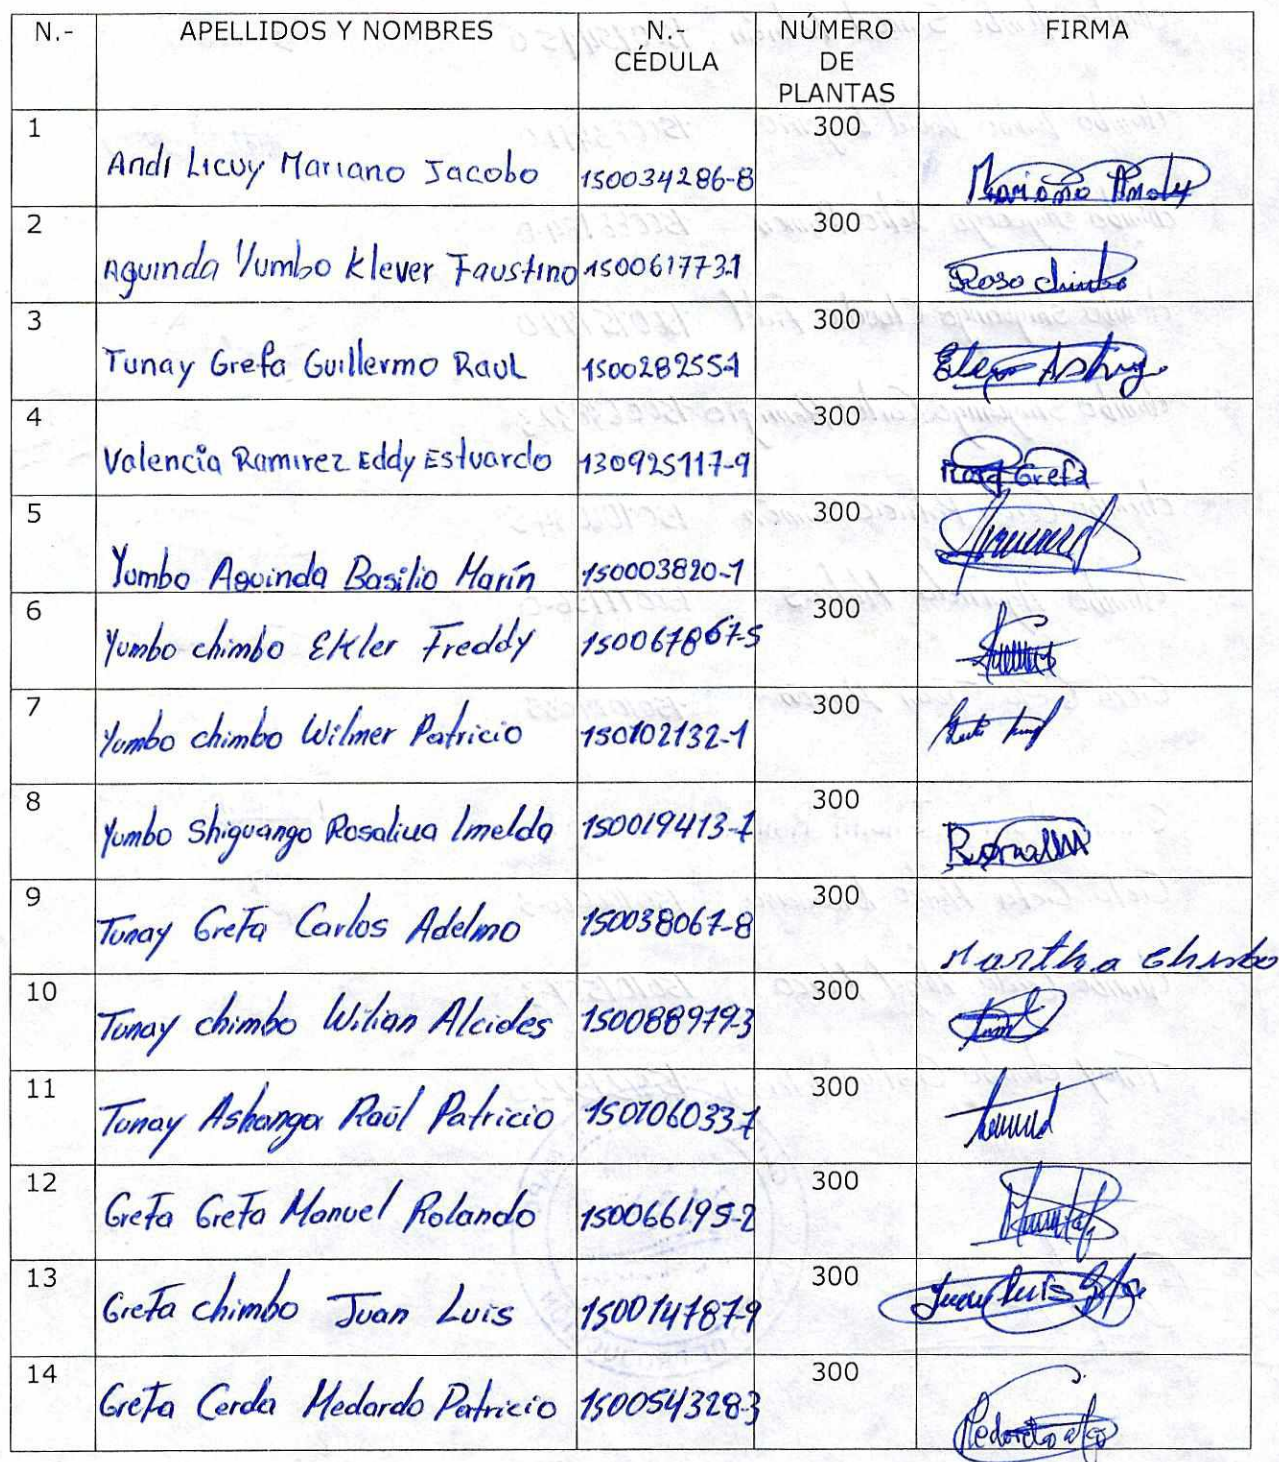 N.- APELLIDOS Y NOMBRES N.- CÉDULA NÚMERO DE PLANTAS FIRMA
1 Andi Licuy Mariano Jacobo 150034286-8 300 Mariano Andy
2 Aguinda Yumbo Klever Faustino 150061773-1 300 Rosa chimbo
3 Tunay Grefa Guillermo Raul 150028255-1 300
4 Valencia Ramirez Eddy Estuardo 130925117-9 300 Rosa Grefa
5 Yumbo Aguinda Basilio Marín 150003820-1 300
6 Yumbo chimbo Ekler Freddy 150067867-5 300
7 Yumbo chimbo Wilmer Patricio 150102132-1 300
8 Yumbo Shiguango Rosalina Imelda 150019413-1 300
9 Tunay Grefa Carlos Adelmo 150038067-8 300 Martha Chimbo
10 Tunay chimbo Wilian Alcides 150088979-3 300
11 Tunay Ashanga Raúl Patricio 150106033-7 300
12 Grefa Grefa Manuel Rolando 150066195-2 300
13 Grefa chimbo Juan Luis 150014787-9 300 Juan Luis
14 Grefa Cerda Medardo Patricio 150054328-3 300